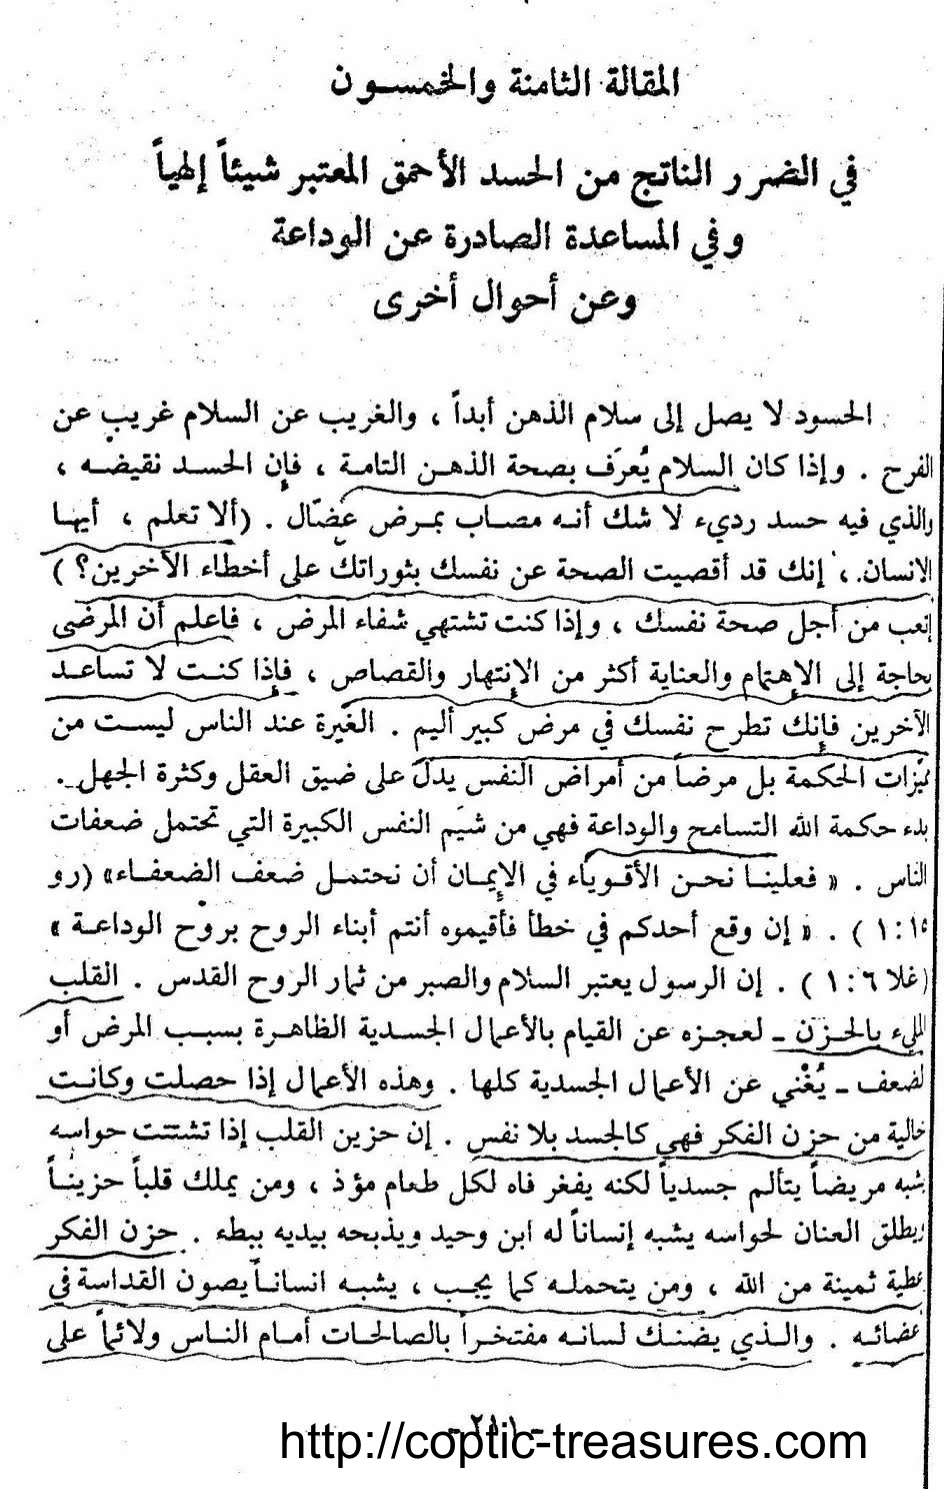 المقالة الثامنة والخمسون
في الضرر الناتج من الحسد الأحمق المعتبر شيئاً إلهياً
وفي المساعدة الصادرة عن الوداعة
وعن أحوال أخرى
الحسود لا يصل إلى سلام الذهن أبداً ، والغريب عن السلام غريب عن
الفرح . وإذا كان السلام يُعرَف بصحة الذهن التامة ، فإن الحسد نقيضه ،
والذي فيه حسد رديء لا شك أنه مصاب بمرض عضّال . (ألا تعلم ، أيها
الانسان ، إنك قد أقصيت الصحة عن نفسك بثوراتك على أخطاء الآخرين؟ )
إتعب من أجل صحة نفسك ، وإذا كنت تشتهي شفاء المرض ، فاعلم أن المرضى
بحاجة إلى الإهتمام والعناية أكثر من الإنتهار والقصاص ، فإذا كنت لا تساعد
الآخرين فإنك تطرح نفسك في مرض كبير أليم . الغيرة عند الناس ليست من
ميّزات الحكمة بل مرضاً من أمراض النفس يدلّ على ضيق العقل وكثرة الجهل .
بدء حكمة الله التسامح والوداعة فهي من شيَم النفس الكبيرة التي تحتمل ضعفات
الناس . « فعلينا نحن الأقوياء في الإيمان أن نحتمل ضعف الضعفاء» (رو
١٥ : ١ ) . « إن وقع أحدكم في خطأ فأقيموه أنتم أبناء الروح بروح الوداعة »
(غلا ٦ : ١ ) . إن الرسول يعتبر السلام والصبر من ثمار الروح القدس . القلب
المليء بالحزن ـ لعجزه عن القيام بالأعمال الجسدية الظاهرة بسبب المرض أو
لضعف ـ يُغْني عن الأعمال الجسدية كلها . وهذه الأعمال إذا حصلت وكانت
خالية من حزن الفكر فهي كالجسد بلا نفس . إن حزين القلب إذا تشتتت حواسه
شبه مريضاً يتألم جسدياً لكنه يفغر فاه لكل طعام مؤذ ، ومن يملك قلباً حزيناً
ويطلق العنان لحواسه يشبه إنساناً له ابن وحيد ويذبحه بيديه ببطء . حزن الفكر
عطية ثمينة من الله ، ومن يتحمله كما يجب ، يشبه انساناً يصون القداسة في
أعضائه . والذي يضنك لسانه مفتخراً بالصالحات أمام الناس ولائماً على
- ٢١١ -
http://coptic-treasures.com